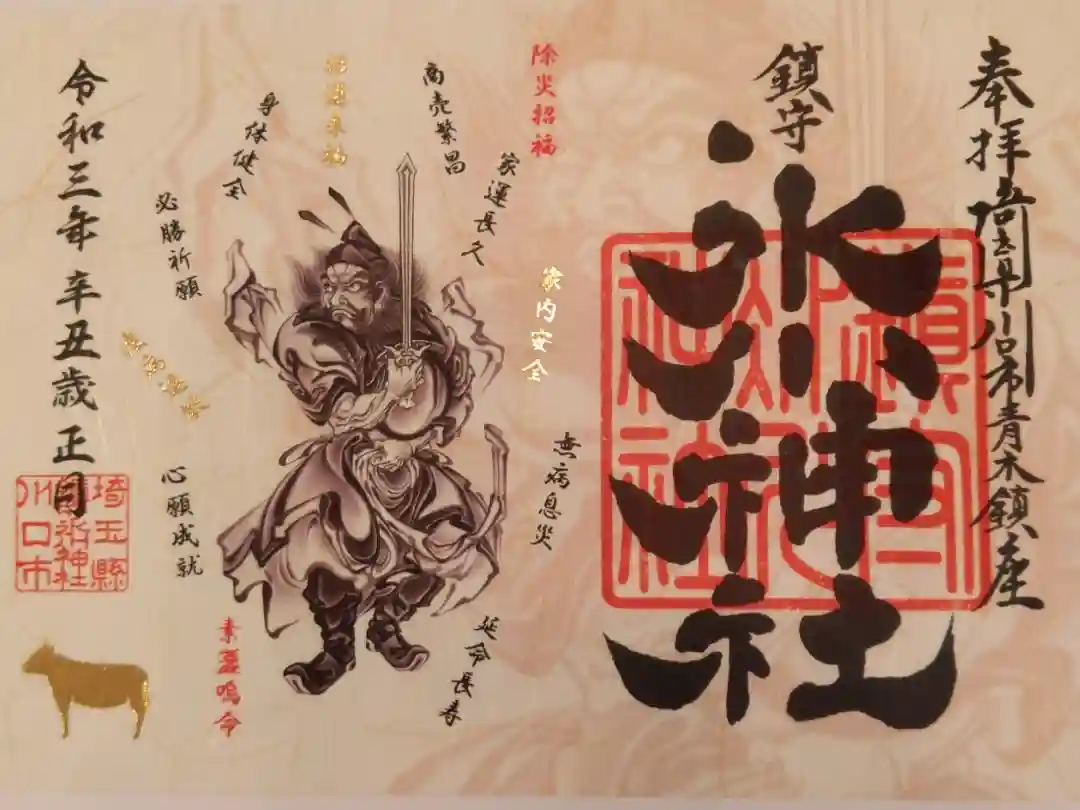 奉拝 埼玉県川口市青木鎮座
鎮守
氷川神社
鎮守
氷川
神社
除災招福
家運長久
家内安全
無病息災
延命長寿
商売繁昌
身体健全
必勝祈願
心願成就
素盞嗚命
令和三年 辛丑歳 正月
埼玉縣
鎮守氷川神社
川口市